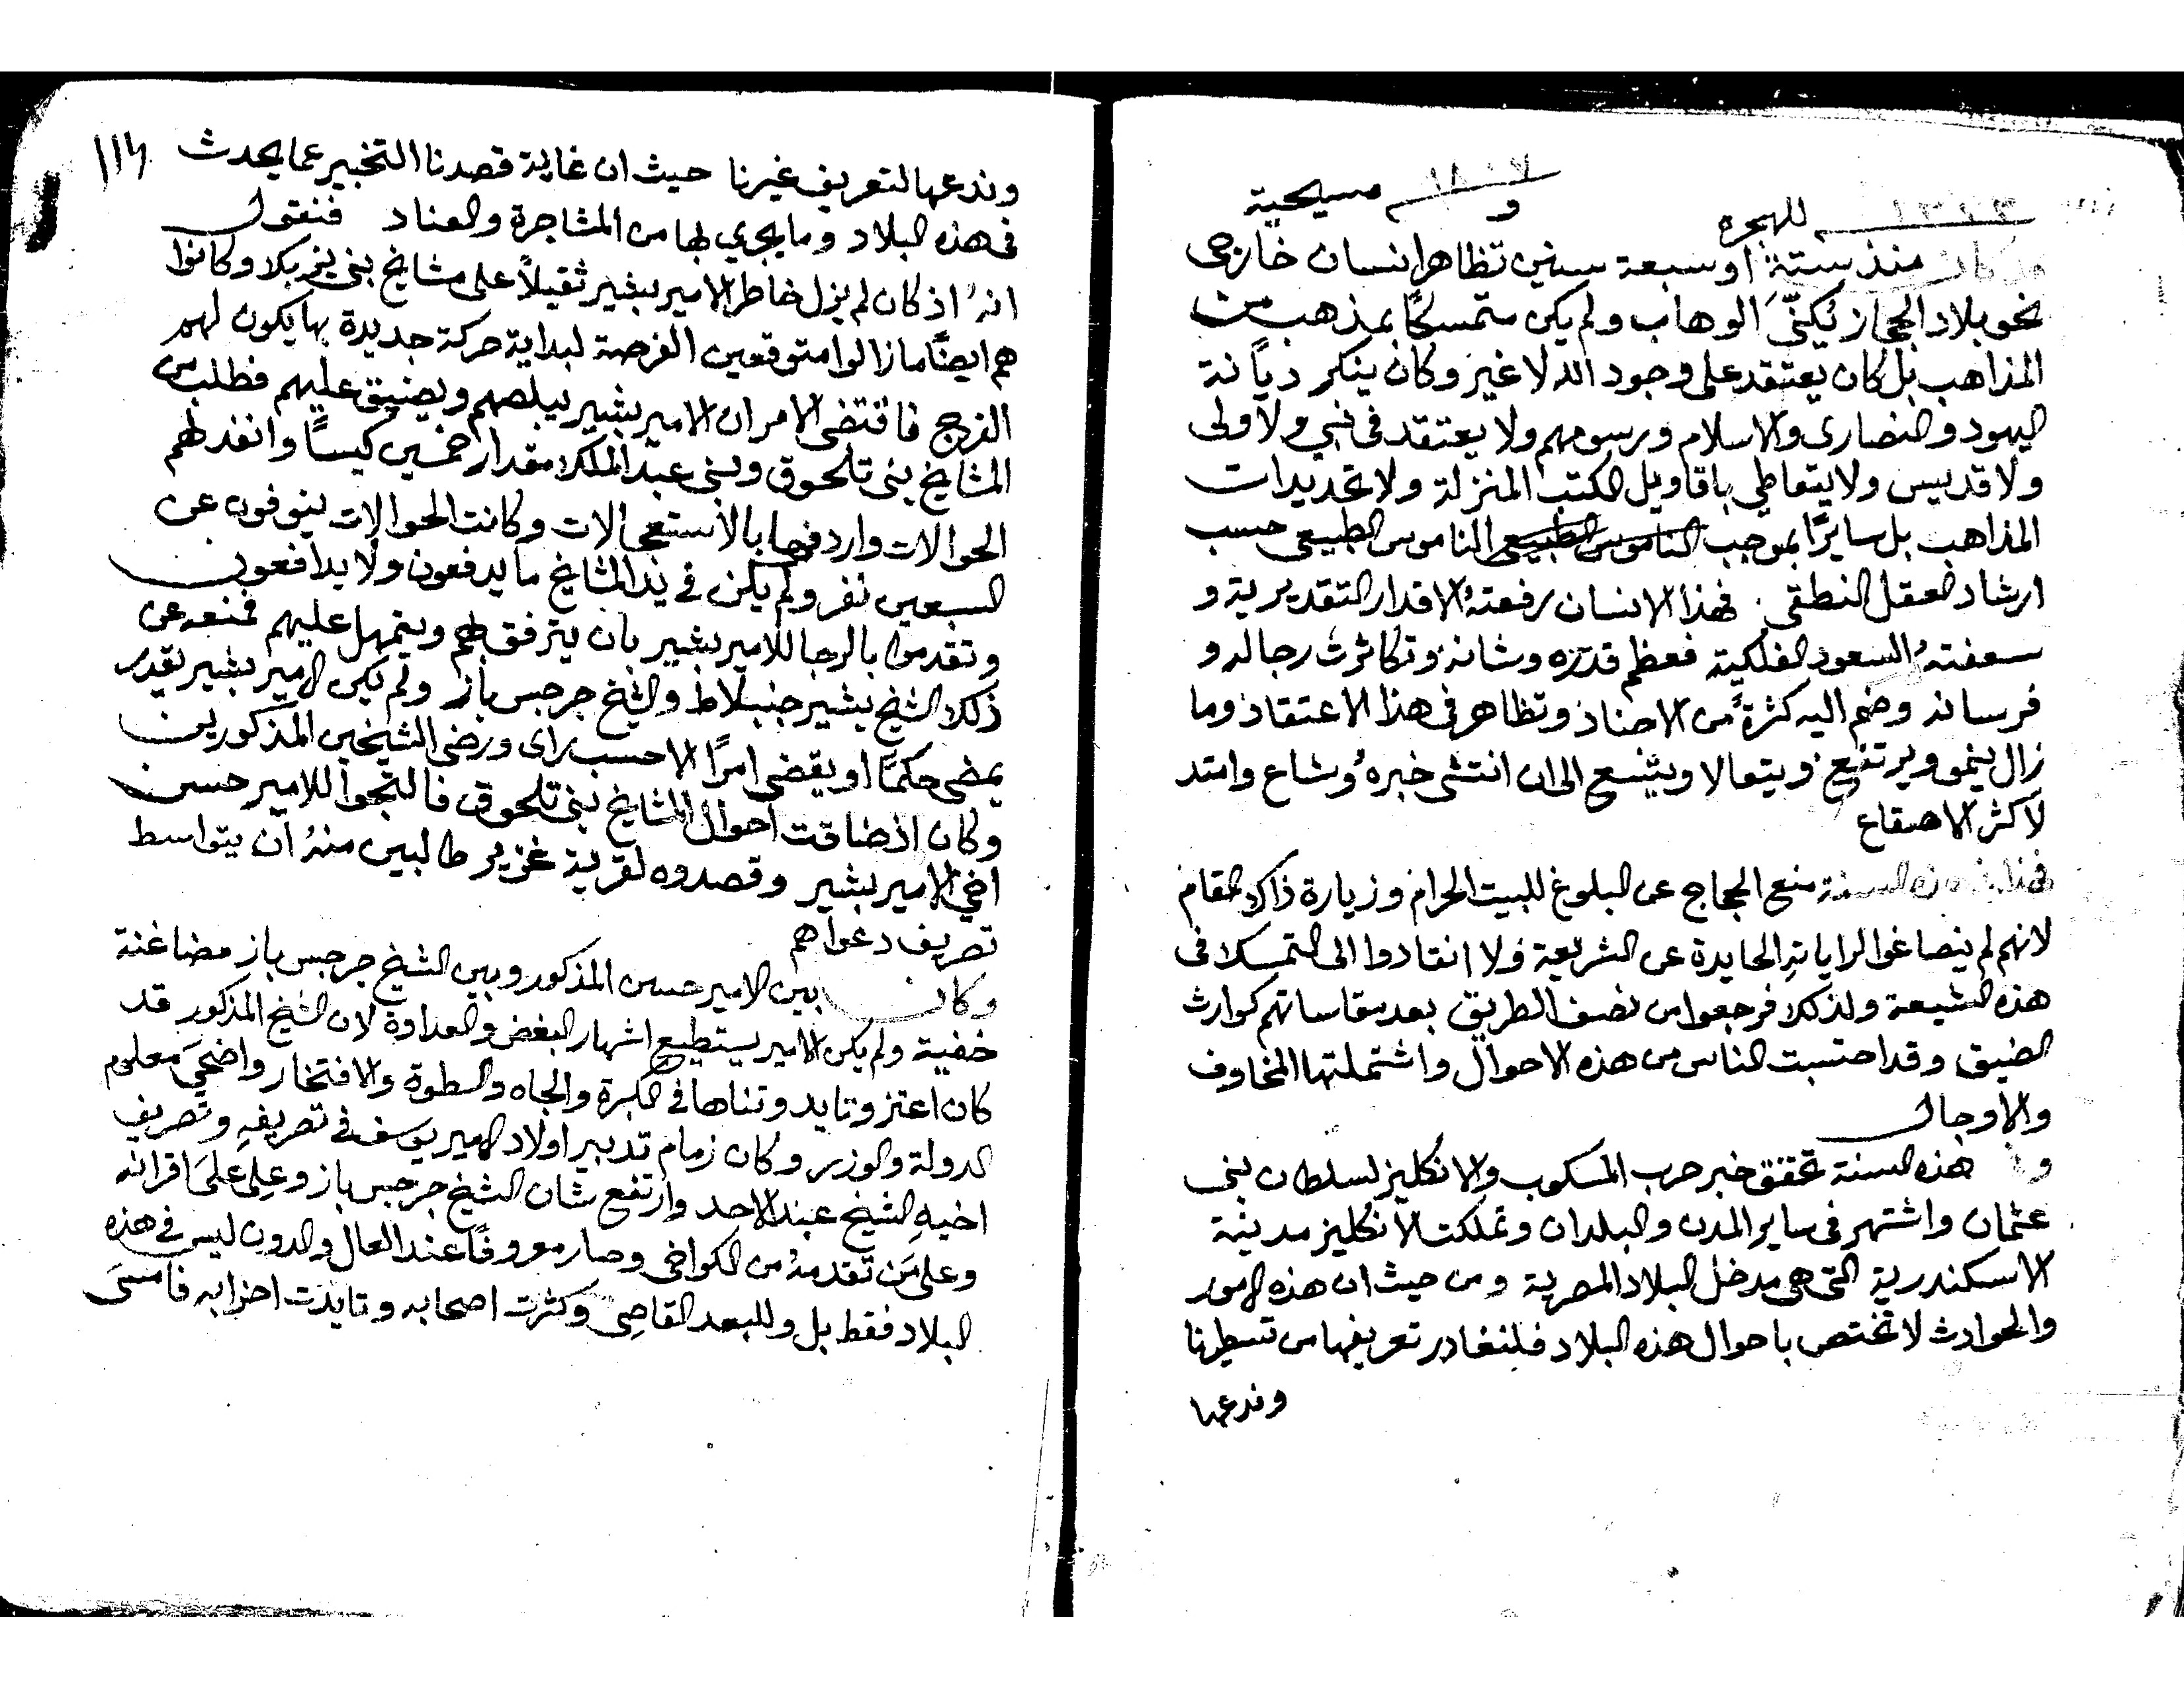 سنة ١٢٢٢ للهجره و سنة ١٨٠٧ مسيحية
قد كان منذ ستة او سبعة سنين تظاهر انسان خارجى
نحو بلاد الحجاز يُكنّىَ الوهاب ولم يكن متمسكًا بمذهب من
المذاهب بل كان يعتقد على وجود الله لا غير وكان ينكر ديانة
اليهود والنصارى والاسلام ورسومهم ولا يعتقد فى نبي ولا ولى
ولا قديس ولا يتعاطي باقاويل الكتب المنزلة ولا تحديدات
المذاهب بل سايرًا بموجب الناموس الطبيعى الناموس الطبيعى حسب
ارشاد العقل النطقى. فهذا الانسان رفعتهُ الاقدار التقديرية و
سعفتهُ السعود الفلكية فعظم قدره وشانه وتكاثرث رجاله و
فرسانه وضم اليه كثرةً من الاجناد وتظاهر فى هذا الاعتقاد وما
زال ينمو ويرتفع ويتعالا ويتسع الى ان انتشى خبرهُ وشاع وامتد
لاكثر الاصقاع
السنة منع الحجاج عن البلوغ للبيت الحرام وزيارة ذاك المقام
لانهم لم ينصاغوا لراياتهِ الحايدة عن الشريعة ولا انقادوا الى التمسك فى
هذه الشيعة ولذلك فرجعوا من نصف الطريق بعد مقاساتهم كوارث
الضيق وقد احتسبت الناس من هذه الاحوال واشتملتها المخاوف
والاوجال
وفى هذه السنة تحقق خبر حرب المسكوب والانكليز لسلطان بنى
عثمان واشتهر فى ساير المدن والبلدان وتملكت الانكليز مدينة
الاسكندرية التى هى مدخل البلاد المصرية ومن حيث ان هذه الامور
والحوادث لا تختص باحوال هذه البلاد فلنغادر تعريفها من تسطيرنا
وندعها
١١٤
وندعها لتعريف غيرنا حيث ان غاية قصدنا التخبير عما يحدث
فى هذه البلاد وما يجري لها من المشاجرة والعناد فنقول
انهُ اذ كان لم يزل خاطر الامير بشير ثقيلاً على مشايخ بنى يزبك وكانوا
هم ايضًا ما زالوا متوقعين الفرصة لبداية حركة جديدة بها يكون لهم
الفرج فاقتضى الامر ان الامير بشير يبلصهم ويضيق عليهم فطلب من
المشايخ بنى تلحوق وبنى عبد الملك مقدار خمسين كيسًا وانفذ لهم
الحوالات واردفها بالاستعجالات وكانت الحوالات ينوفون عن
السبعين نفر ولم يكن فى يد المشايخ ما يدفعون ولا يدافعون
وتقدموا بالرجا للامير بشير بان يترفق بهم ويتمهل عليهم فمنعه عن
ذلك الشيخ بشير جنبلاط والشيخ جرجس باز ولم يكن الامير بشير يقدر
يمضى حكمًا او يقضى امرًا الا حسب راى ورضى الشيخين المذكورين
وكان اذ ضاقت احوال المشايخ بنى تلحوق فالتجوا للامير حسن
اخى الامير بشير وقصدوه لقرية غزير طالبين منهُ ان يتواسط
تصريف دعواهم
وكان بين الامير حسن المذكور وبين الشيخ جرجس باز مضاغنة
خفية ولم يكن الامير يستطيع اشهار البغض والعداوة لان الشيخ المذكور قد
كان اعتز وتايد وتناها فى الكبرة والجاه والسطوة والافتخار واضحىَ معلوم
الدولة والوزر وكان زمام تدبير اولاد الامير يوسف فى تصريفهِ وتصريف
اخيهِ الشيخ عبد الاحد وارتفع شان الشيخ جرجس باز وعلى علىَ اقرانه
وعلى مَن تقدمهُ من الكواخى وصار معروفًا عند العال والدون ليس فى هذه
البلاد فقط بل وللبعد القاصِى وكثرت اصحابه وتايدت احزابه فامسىَ